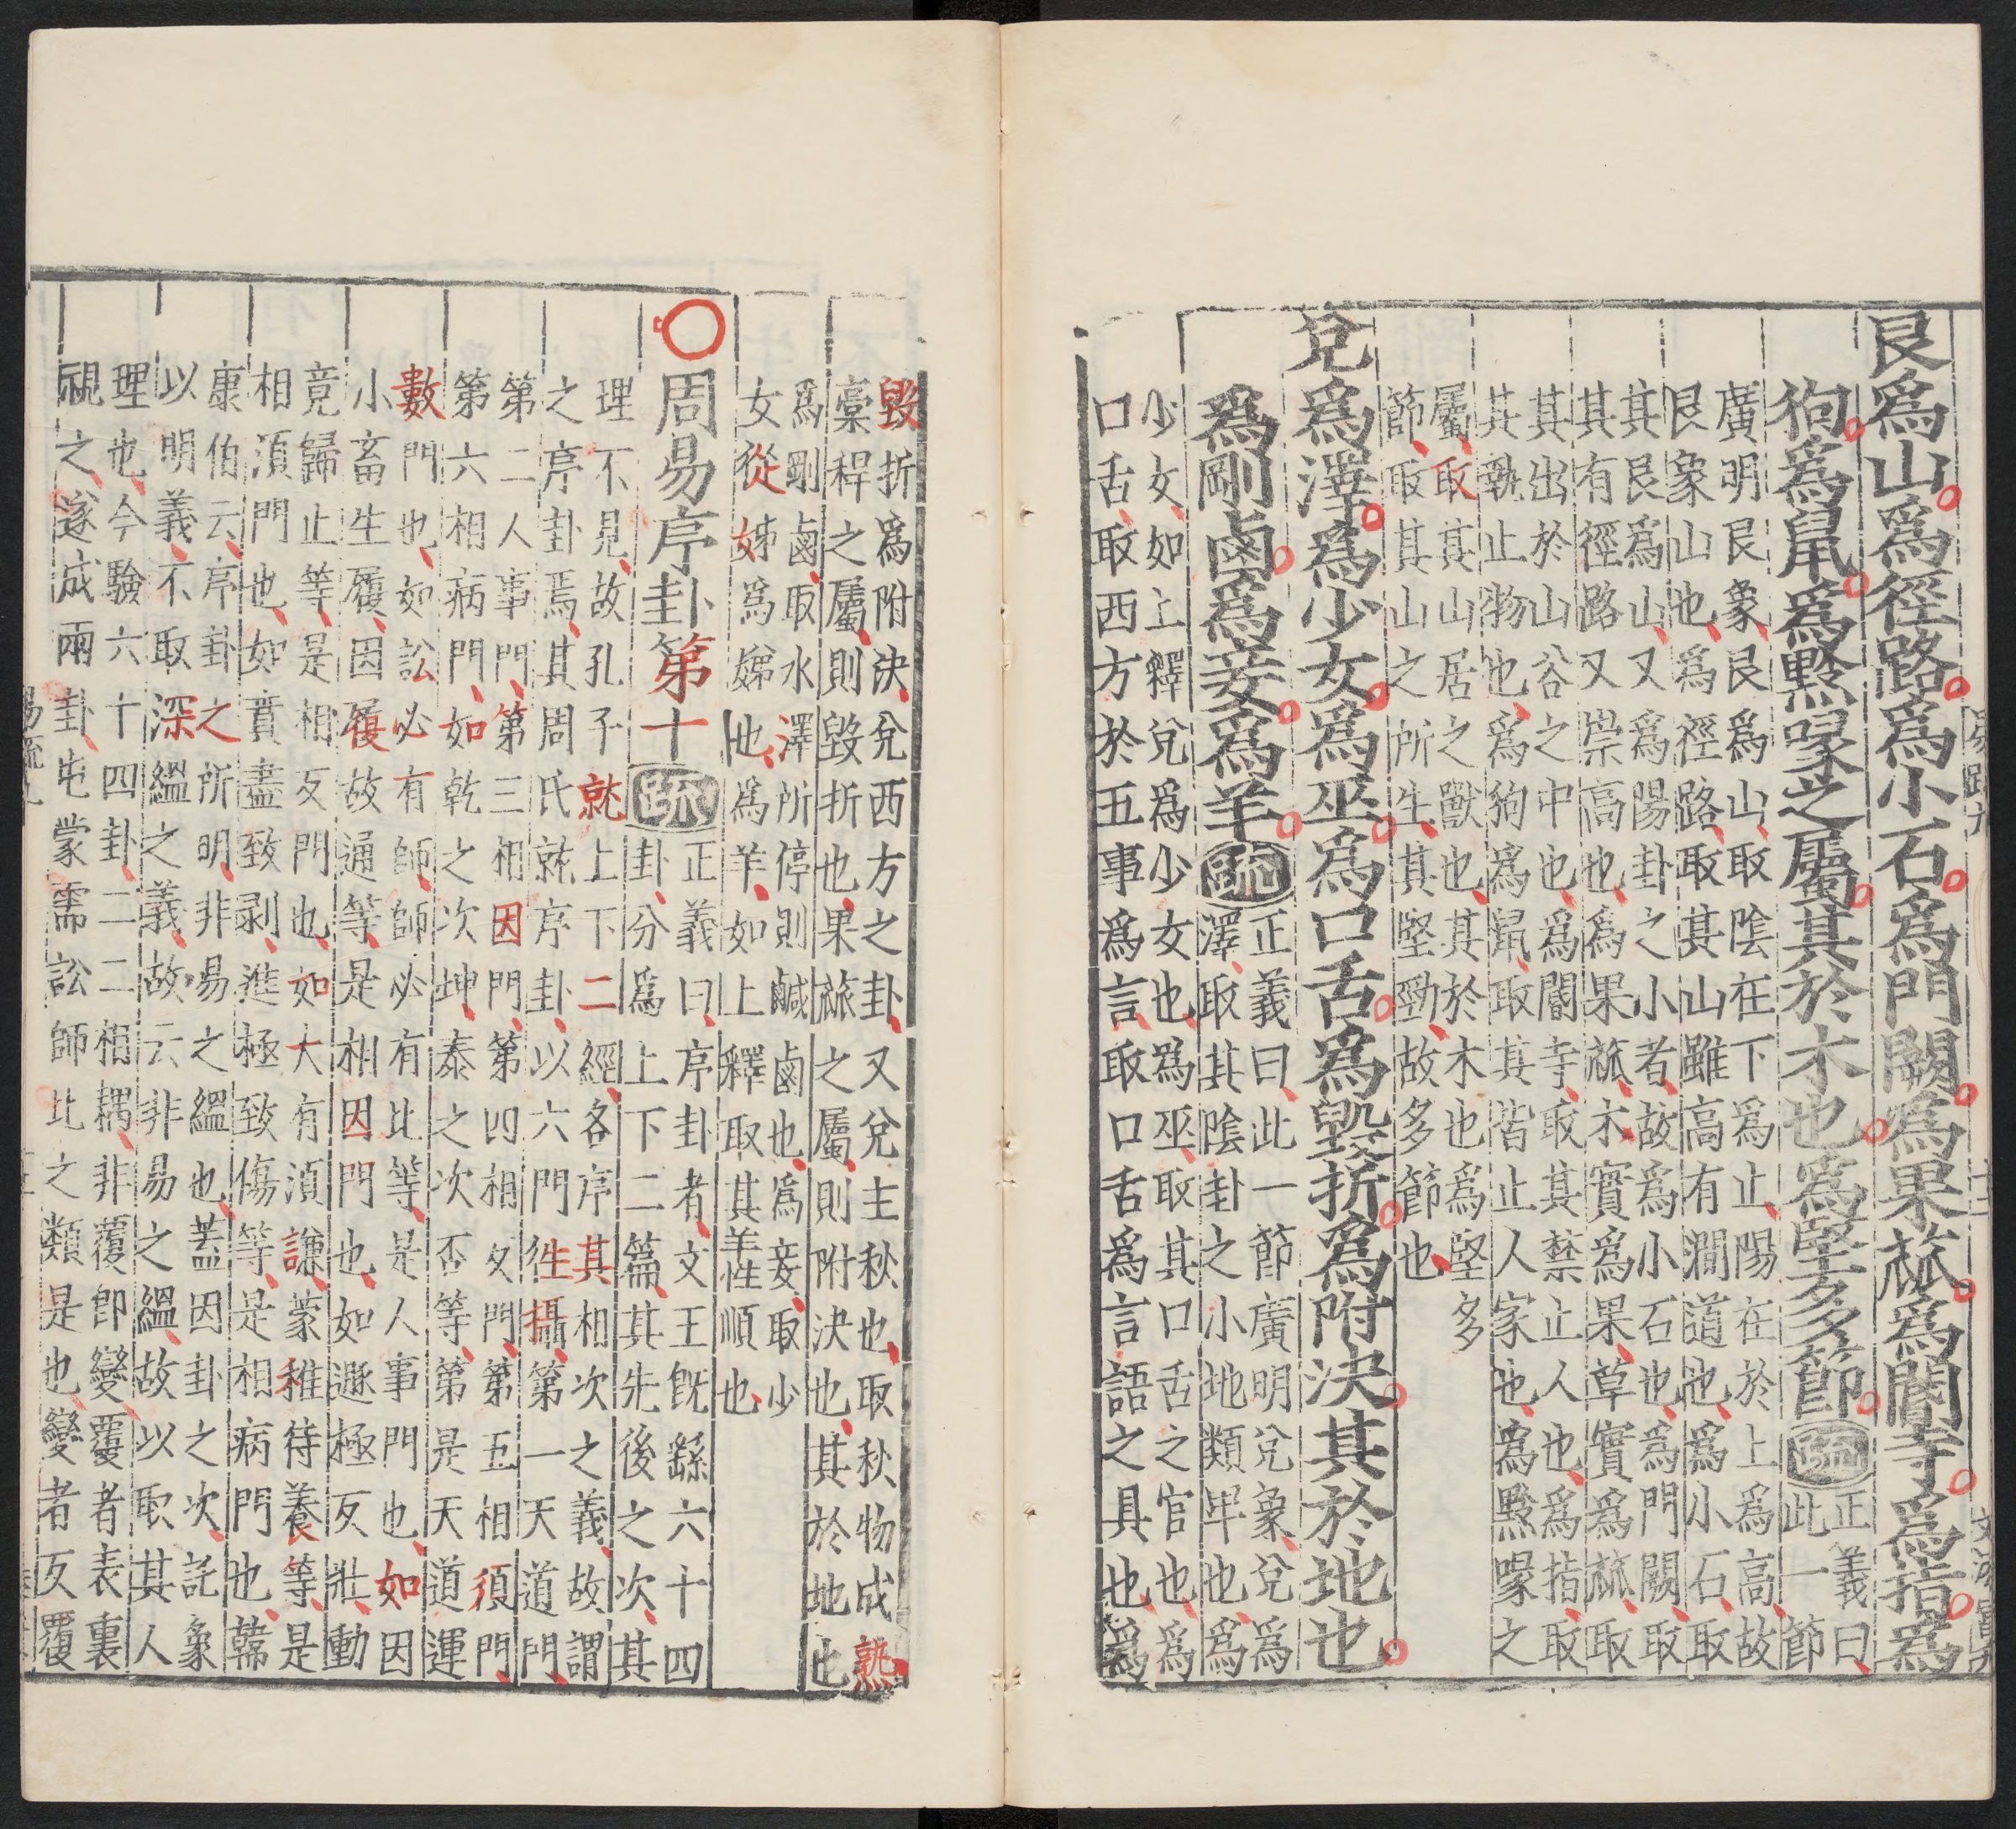 艮爲山爲徑路爲小石爲門闕爲果蓏爲閽寺爲指爲
狗爲鼠爲黔喙之屬其於木也爲堅多節疏
正義曰
此一節
廣明艮象艮爲山取陰在下爲止陽在於上爲高故
艮象山也爲徑路取其山雖高有澗道也爲小石取
其艮爲山又爲陽卦之小者故爲小石也爲門闕取
其有徑路又崇高也爲果蓏木實爲果草實爲蓏取
其出於山谷之中也爲閽寺取其禁止人也爲指取
其執止物也爲狗爲鼠取其皆止人家也爲黔喙之
屬取其山居之獸也其於木也爲堅多
節取其山之所生其堅勁故多節也
兌爲澤爲少女爲巫爲口舌爲毀折爲附決其於地也
爲剛鹵爲妾爲羊疏
正義曰此一節廣明兌象兌爲
澤取其陰卦之小地類卑也爲
少女如上釋兌爲少女也爲巫取其口舌之官也爲
口舌取西方於五事爲言取口舌爲言語之具也爲
毀折爲附決兌西方之卦又兌主秋也取秋物成熟
槀稈之屬則毀折也果蓏之屬則附決也其於地也
爲剛鹵取水澤所停則鹹鹵也爲妾取少
女從姊爲娣也爲羊如上釋取其羊性順也
周易序卦第十疏
正義曰序卦者文王旣繇六十四
卦分爲上下二篇其先後之次其
理不見故孔子就上下二經各序其相次之義故謂
之序卦焉其周氏就序卦以六門往攝第一天道門
第二人事門第三相因門第四相反門第五相須門
第六相病門如乾之次坤泰之次否等第是天道運
數門也如訟必有師師必有比等是人事門也如因
小畜生履因履故通等是相因門也如遯極反壯動
竟歸止等是相反門也如大有須謙蒙稚待養等是
相須門也如賁盡致剥進極致傷等是相病門也韓
康伯云序卦之所明非易之縕也蓋因卦之次託象
以明義不取深縕之義故云非易之縕故以取其人
理也今驗六十四卦二二相耦非覆卽變覆者表裏
視之遂成兩卦屯蒙需訟師比之類是也變者反覆